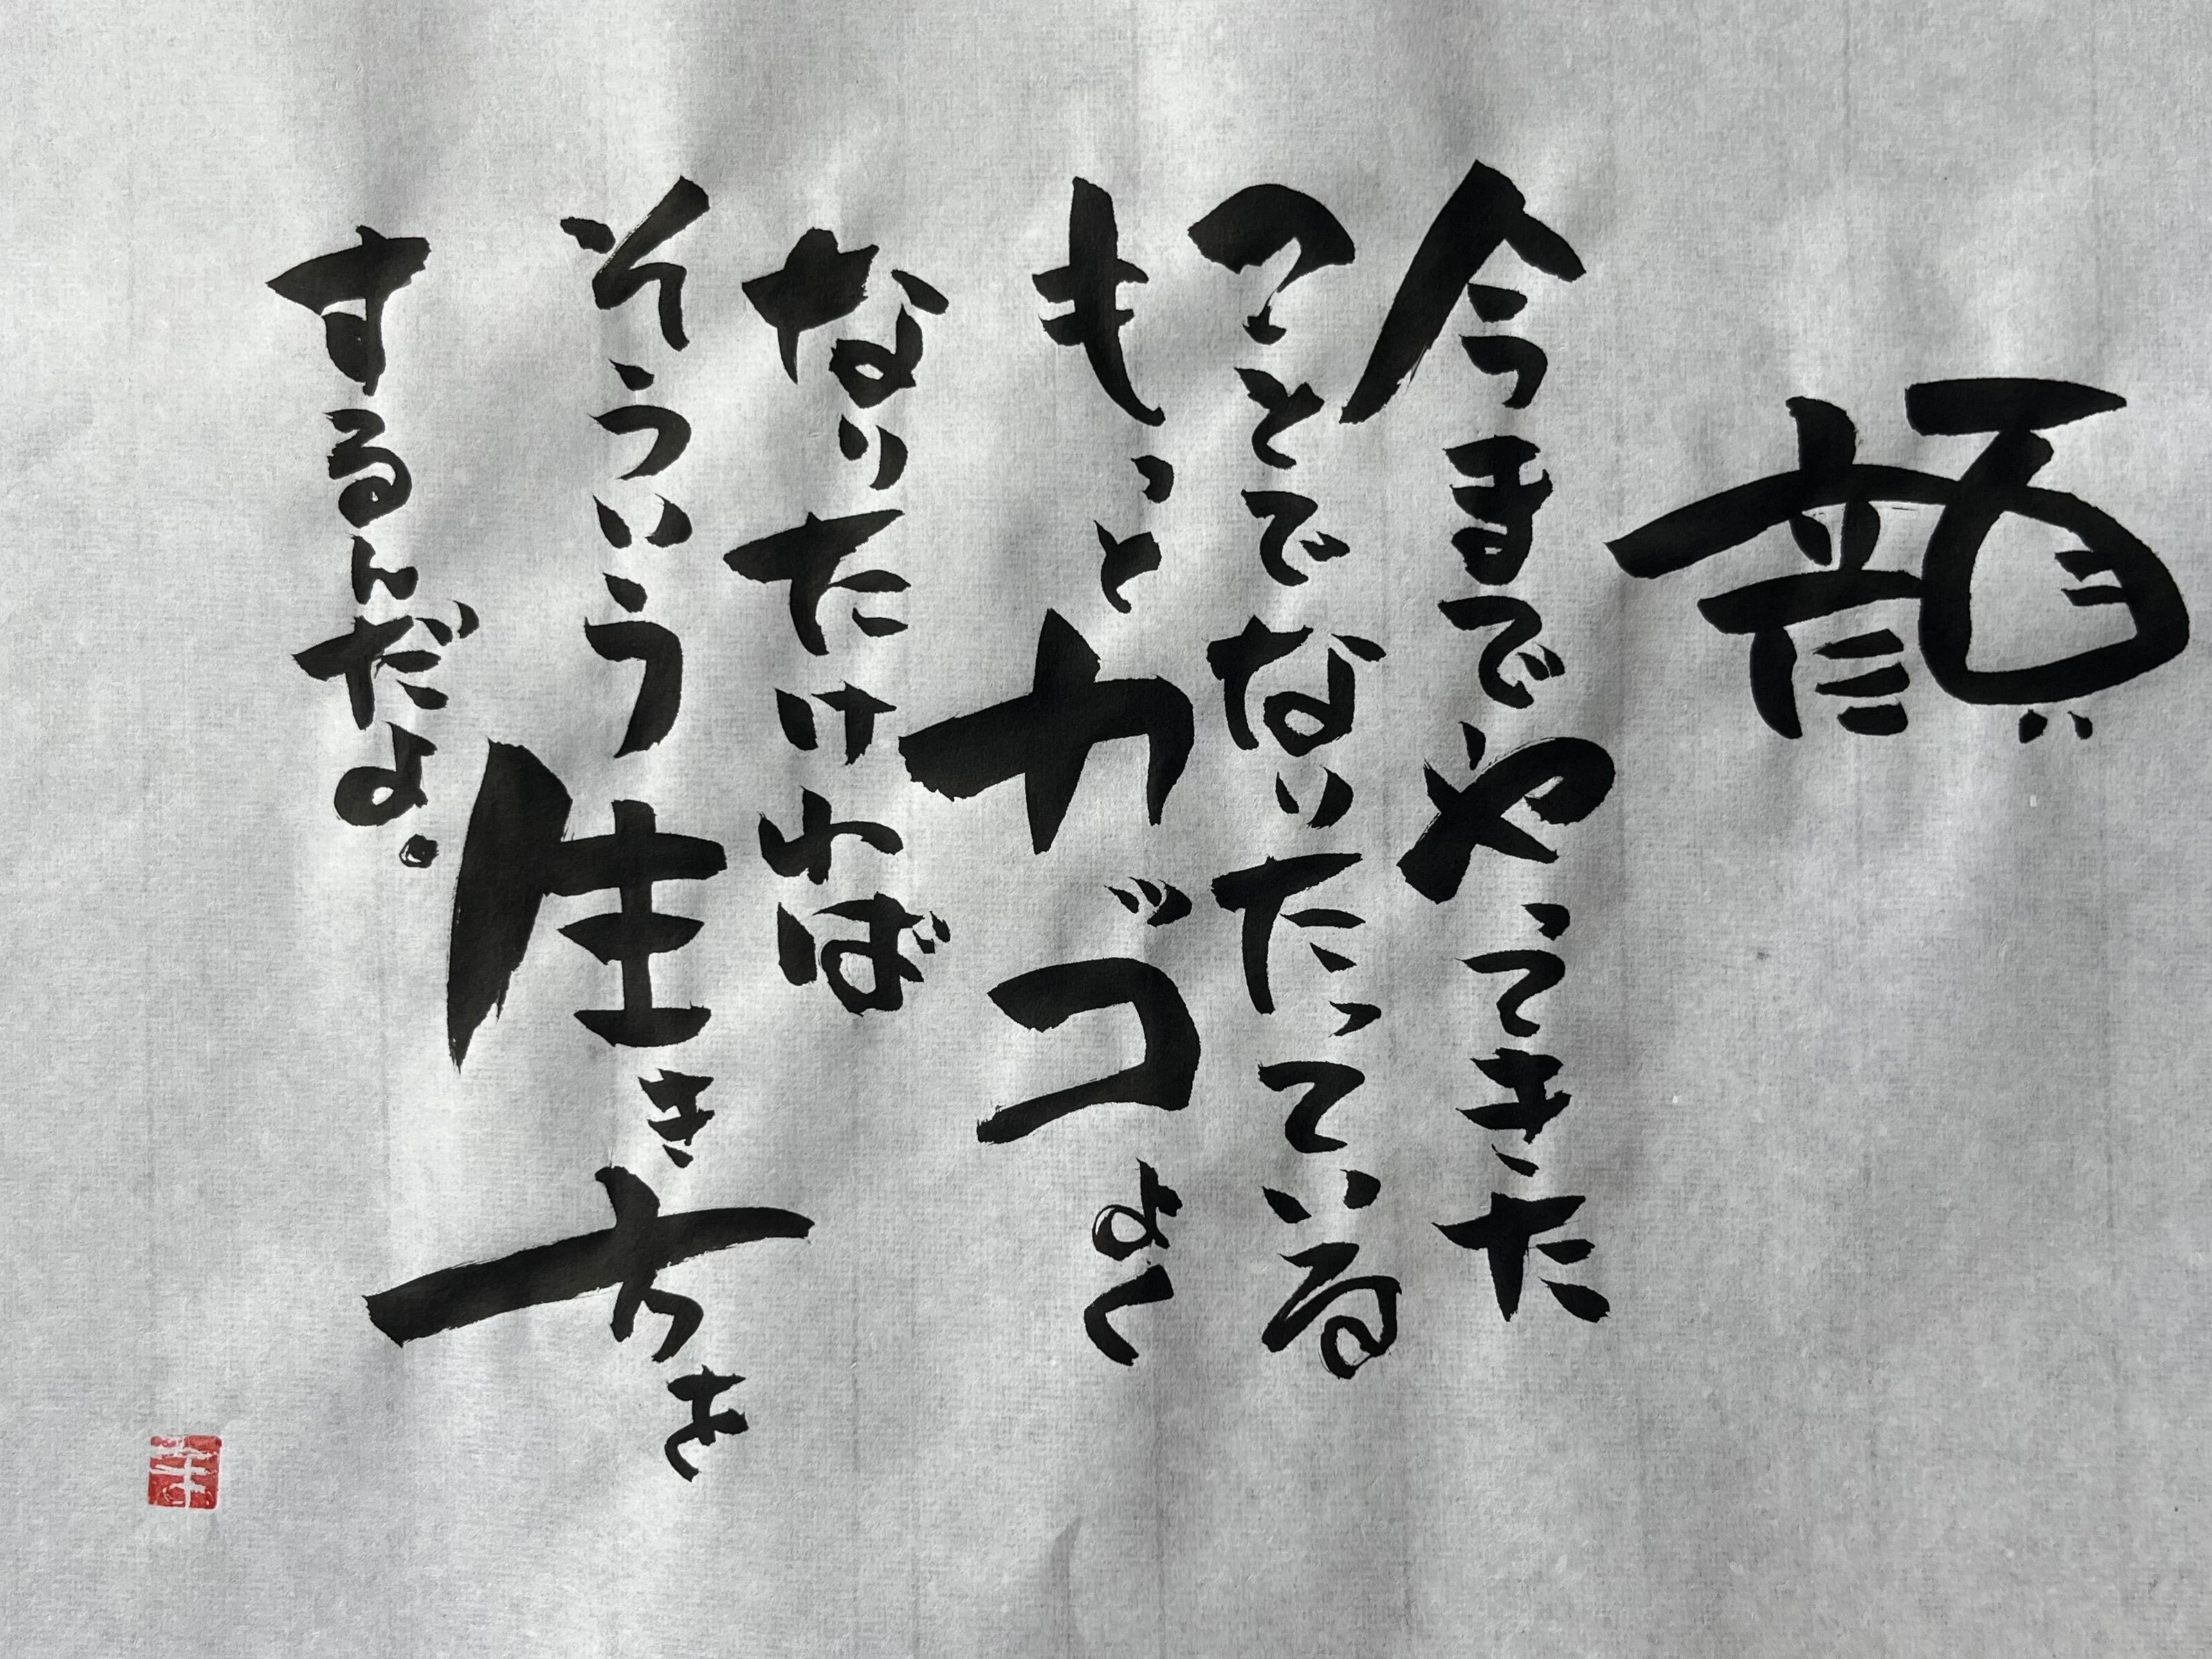 顔
今までやってきた
ことでなりたっている
もっとカッコよく
なりたければ
そういう生き方を
するんだよ。